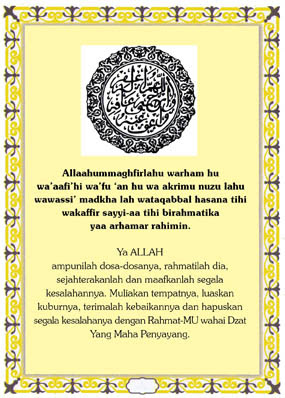 Allaahummaghfirlahu warham hu
wa'aafi'hi wa'fu 'an hu wa akrimu nuzu lahu
wawassi' madkha lah wataqabbal hasana tihi
wakaffir sayyi-aa tihi birahmatika
yaa arhamar rahimin.
Ya ALLAH
ampunilah dosa-dosanya, rahmatilah dia,
sejahterakanlah dan maafkanlah segala
kesalahannya. Muliakan tempatnya, luaskan
kuburnya, terimalah kebaikannya dan hapuskan
segala kesalahanya dengan Rahmat-MU wahai Dzat
Yang Maha Penyayang.